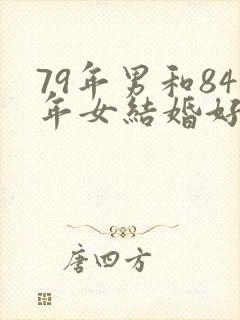 79年男和84
年女結婚好
唐四方